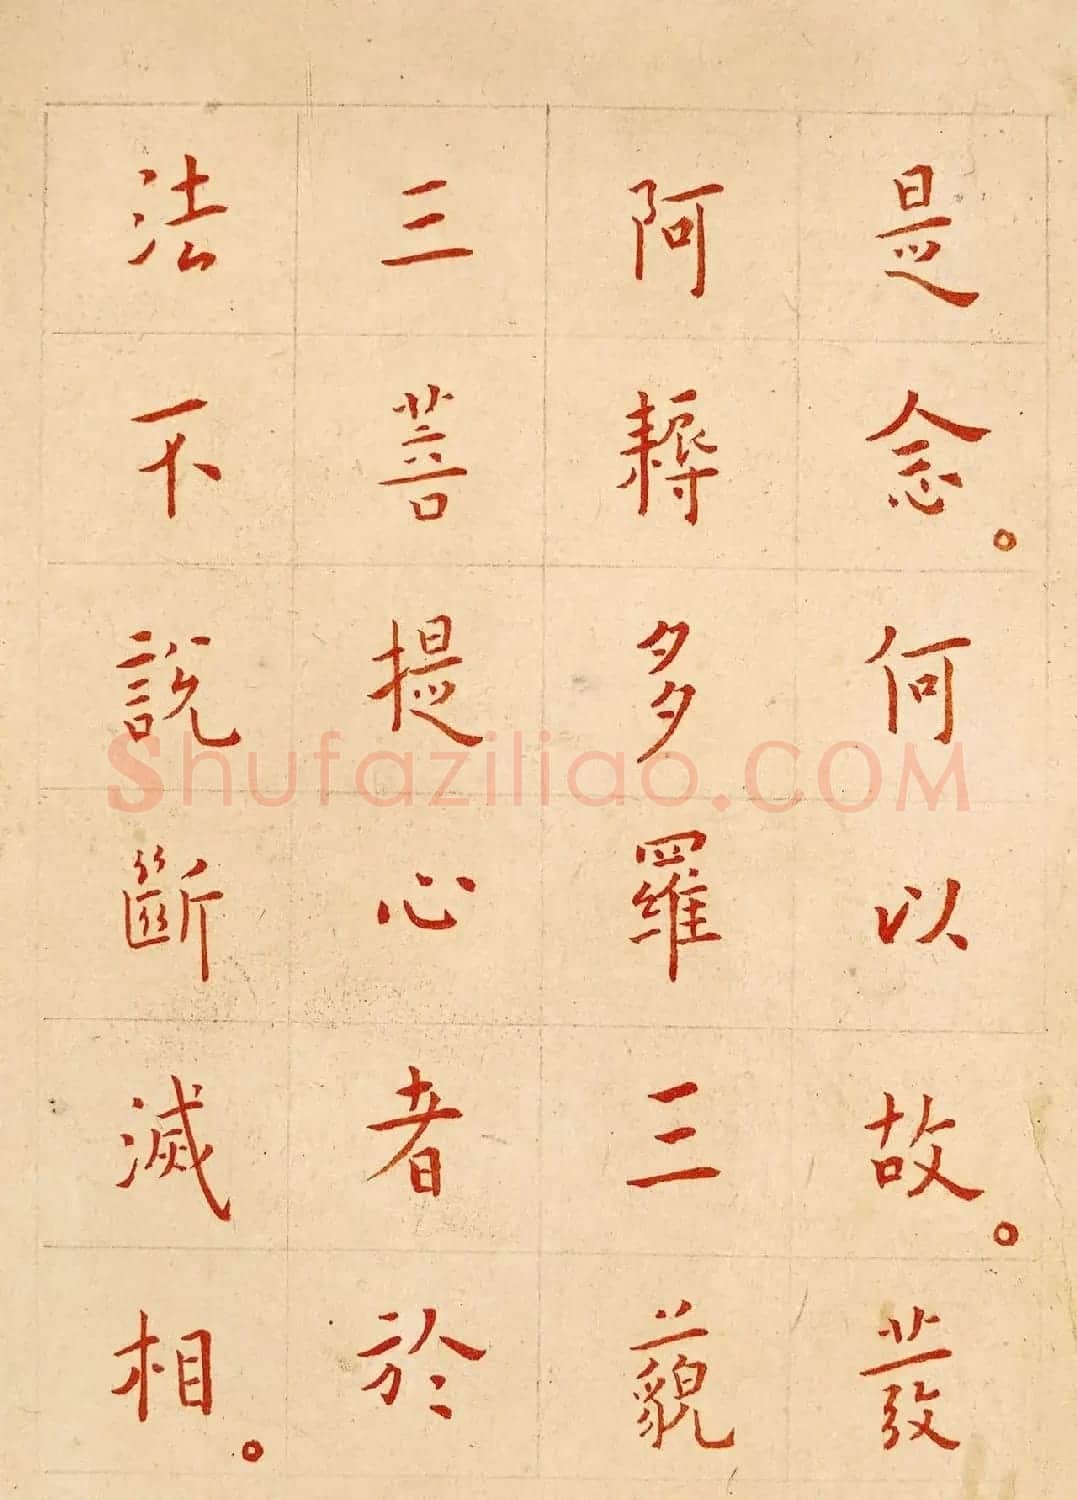 是念。何以故。發
阿耨多羅三藐
三菩提心者於
法不說斷滅相。
Shufaziliao.COM